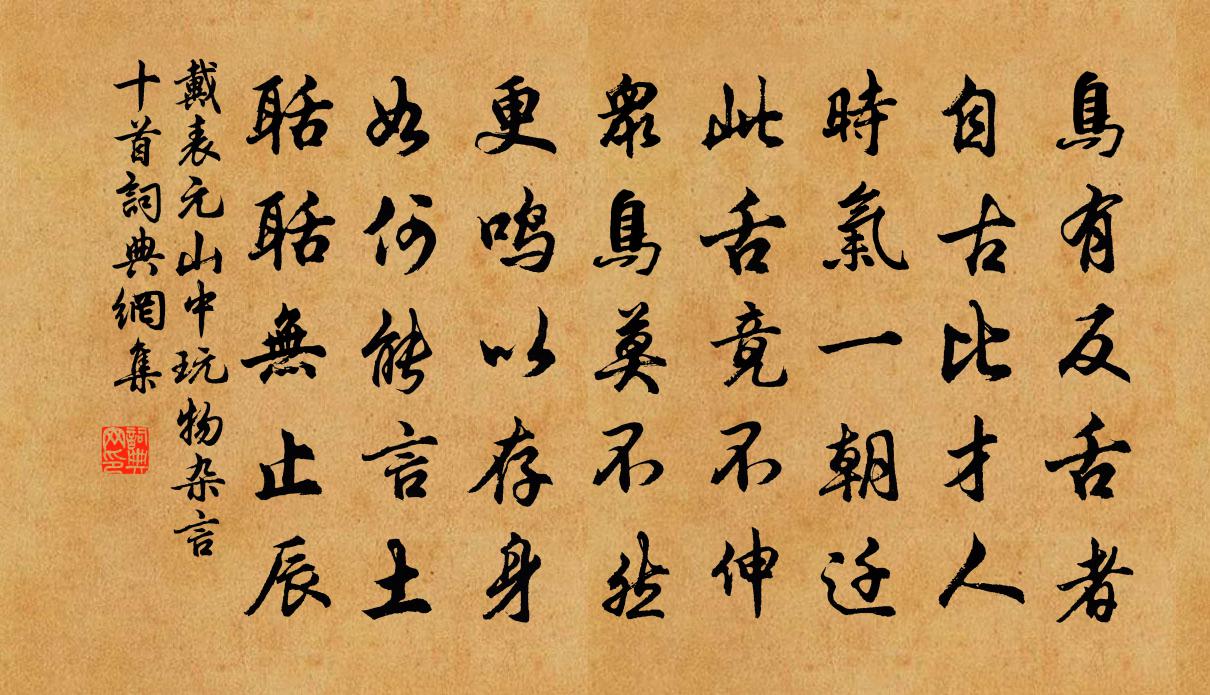 鳥有反舌者
自古比才人
時氣一朝迁
此舌竟不伸
眾鳥莫不然
更鸣以存身
如何能言土
聒聒無止辰
戴表元山中玩物杂言
十首詞典網集
詞典网印